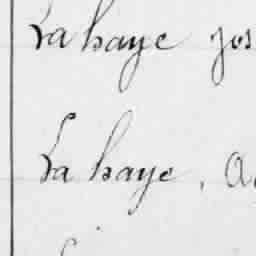 Lahaye Jos
Lahaye, A